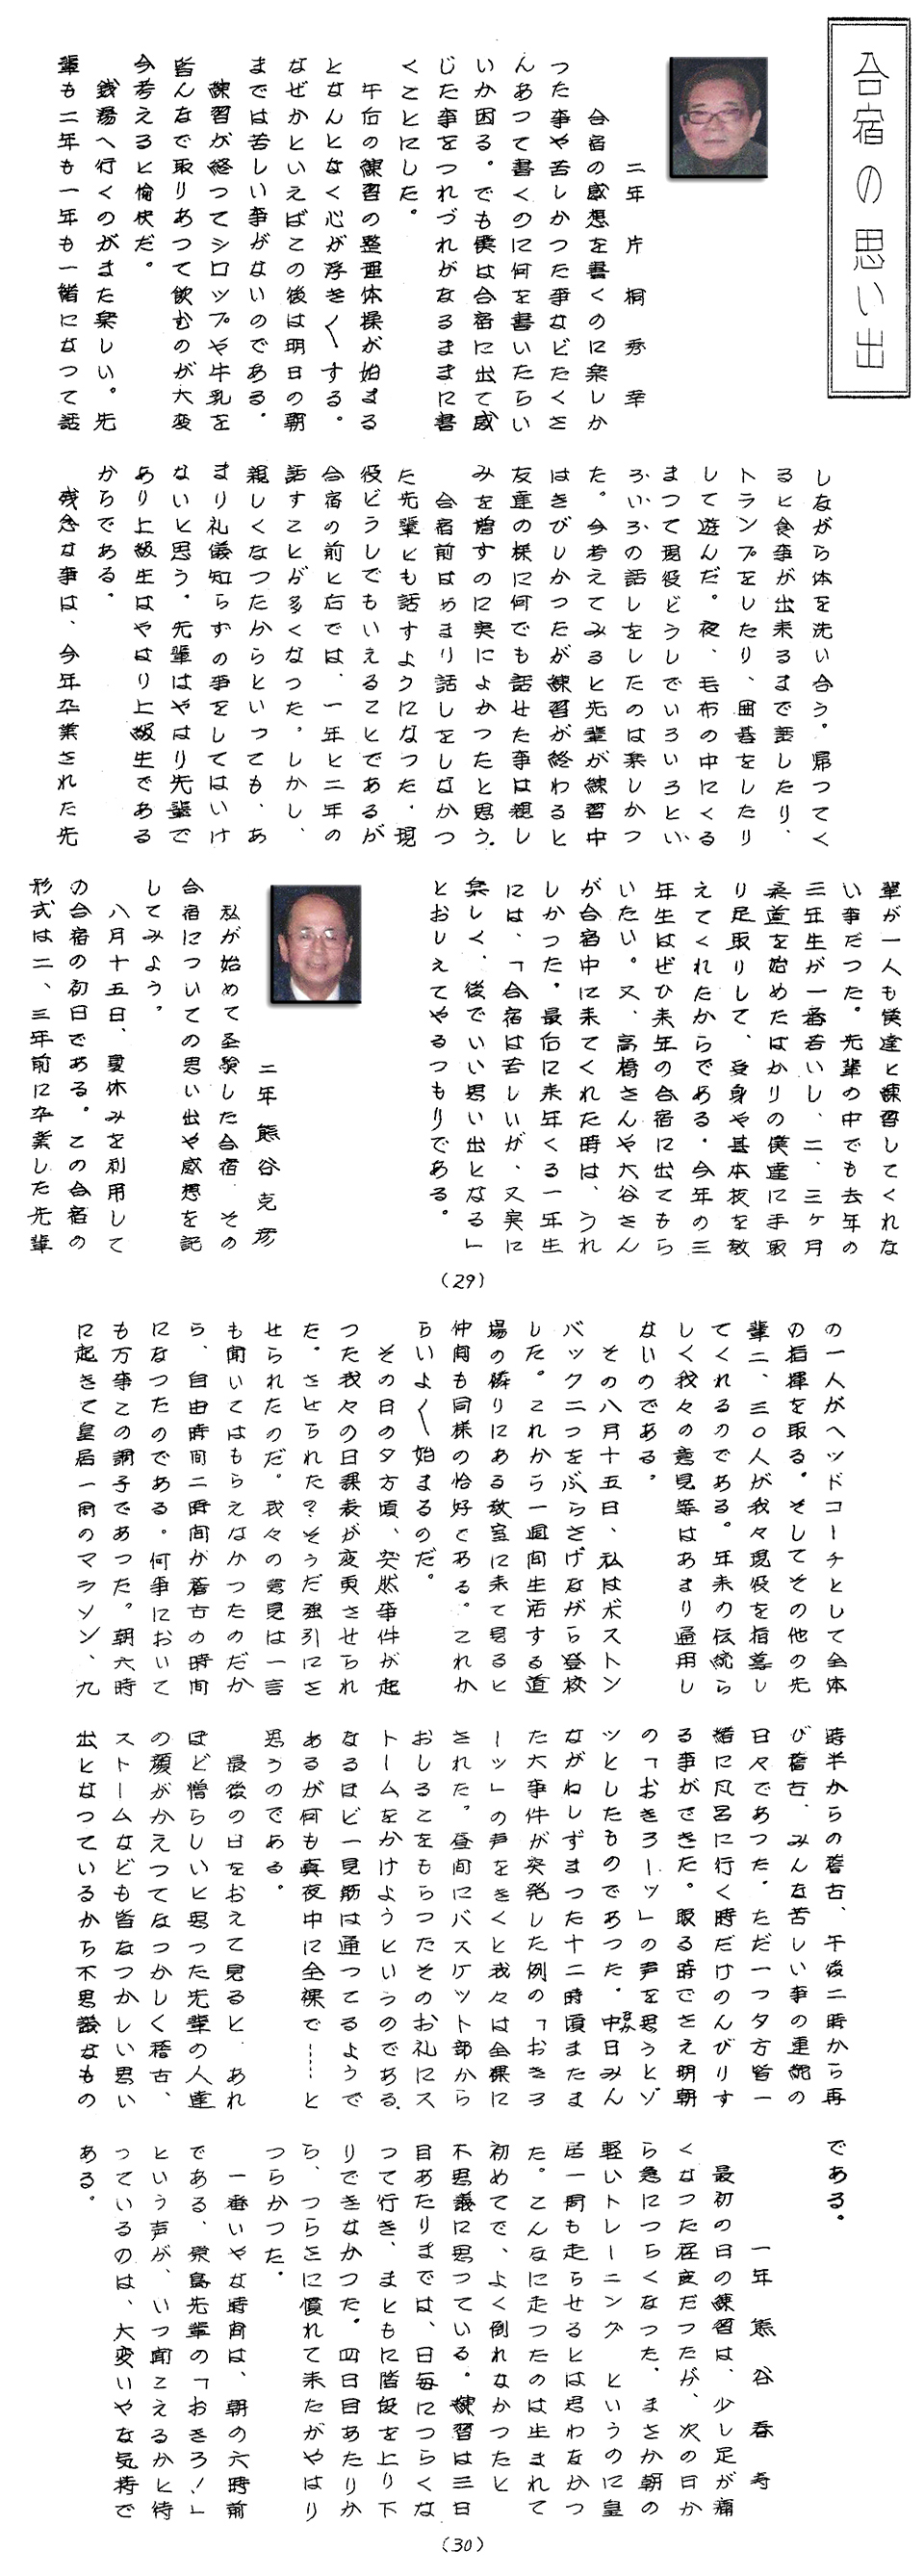 合宿の思い出
二年　片桐秀幸
合宿の感想を書くのに楽しか
つた事や苦しかつた事などたくさ
んあつて書くのに何を書いたらい
いか困る。でも僕は合宿に出て感
じた事をつれづれがなるままに書
くことにした。
午后の練習の整理体操が始まる
となんとなく心が浮き〱する。
なぜかといえばこの後は明日の朝
までは苦しい事がないのである。
練習が終つてシロップや牛乳を
皆んなで取りあつて飲むのが大変
今考えると愉快だ。
銭湯へ行くのがまた楽しい。先
輩も二年も一年も一緒になつて話
しながら体を洗い合う。帰つてく
ると食事が出来るまで話したり、
トランプをしたり、囲碁をしたり
して遊んだ。夜、毛布の中にくる
まつて現役どうしでいろいろとい
ろいろの話しをしたのは楽しかつ
た。今考えてみると先輩が練習中
はきびしかつたが練習が終わると
友達の様に何でも話せた事は親し
みを増すのに実によかつたと思う。
合宿前はあまり話しをしなかつ
た先輩とも話すようになつた、現
役どうしでもいえることであるが
合宿の前と后では、一年と二年の
話すことが多くなつた。しかし、
親しくなつたからといつても、あ
まり礼儀知らずの事をしてはいけ
ないと思う。先輩はやはり先輩で
あり上級生はやはり上級生である
からである。
残念な事は、今年卒業された先
輩が一人も僕達と練習してくれな
い事だつた。先輩の中でも去年の
三年生が一番若いし、二、三ヶ月
柔道を始めたばかりの僕達に手取
り足取りして、受身や基本技を教
えてくれたからである。今年の三
年生はぜひ来年の合宿に出てもら
いたい。又、高橋さんや大谷さん
が合宿中に来てくれた時は、うれ
しかつた。最后に来年くる一年生
には、「合宿は苦しいが、又実に
楽しく、後でいい思い出となる」
とおしえてやるつもりである。
二年　熊谷克彦
私が始めて圣験した合宿、その
合宿についての思い出や感想を記
してみよう。
八月十五日、夏休みを利用して
の合宿の初日である。この合宿の
形式は二、三年前に卒業した先輩
(29)
の一人がヘッドコーチとして全体
の指揮を取る。そしてその他の先
輩二、三〇人が我々現役を指導し
てくれるのである。年来の伝統ら
しく我々の意見等はあまり通用し
ないのである。
その八月十五日、私はボストン
バック二つをぶらさげながら登校
した。これから一週間生活する道
場の隣りにある教室に来て見ると
仲間も同様の恰好である。これか
らいよ〱始まるのだ。
その日の夕方頃、突然事件が起
つた我々の日課表が変更させられ
た。させられた？そうだ強引にさ
せられたのだ。我々の意見は一言
も聞いてはもらえなかつたのだか
ら、自由時間二時間が稽古の時間
になつたのである。何事において
も万事この調子であつた。朝六時
に起きて皇居一周のマラソン、九
時半からの稽古、午後二時から再
び稽古、みんな苦しい事の連続の
日々であつた。ただ一つ夕方皆一
緒に凡呂に行く時だけのんびりす
る事ができた。眠る時でさえ明朝
の「おきろーッ」の声を思うとゾ
ッとしたものであつた。中日みん
ながねしずまつた十二時頃またま
た大事件が突発した例の「おきろ
ーッ」の声をきくと我々は全裸に
された。昼間にバスケット部から
おしるこをもらつたそのお礼にス
トームをかけようというのである。
なるほど一見筋は通つてるようで
あるが何も真夜中に全裸で……と
思うのである。
最後の日をおえて見ると、あれ
ほど憎らしいと思つた先輩の人達
の顔がかえつてなつかしく稽古、
ストームなども皆なつかしい思い
出となつているから不思議なもの
である。
一年　熊谷春寿
最初の日の練習は、少し足が痛
くなつた程度だつたが、次の日か
ら急につらくなつた、まさか朝の
軽いトレーニング　というのに皇
居一周も走らせるとは思わなかつ
た。こんなに走つたのは生まれて
初めてで、よく倒れなかつたと
不思議に思つている。練習は三日
目あたりまでは、日毎につらくな
つて行き、まともに階段を上り下
りできなかつた。四日目あたりか
ら、つらさに慣れて来たがやはり
つらかつた。
一番いやな時間は、朝の六時前
である、泉島先輩の「おきろ！」
という声が、いつ聞こえるかと待
っているのは、大変いやな気持で
ある。
(30)